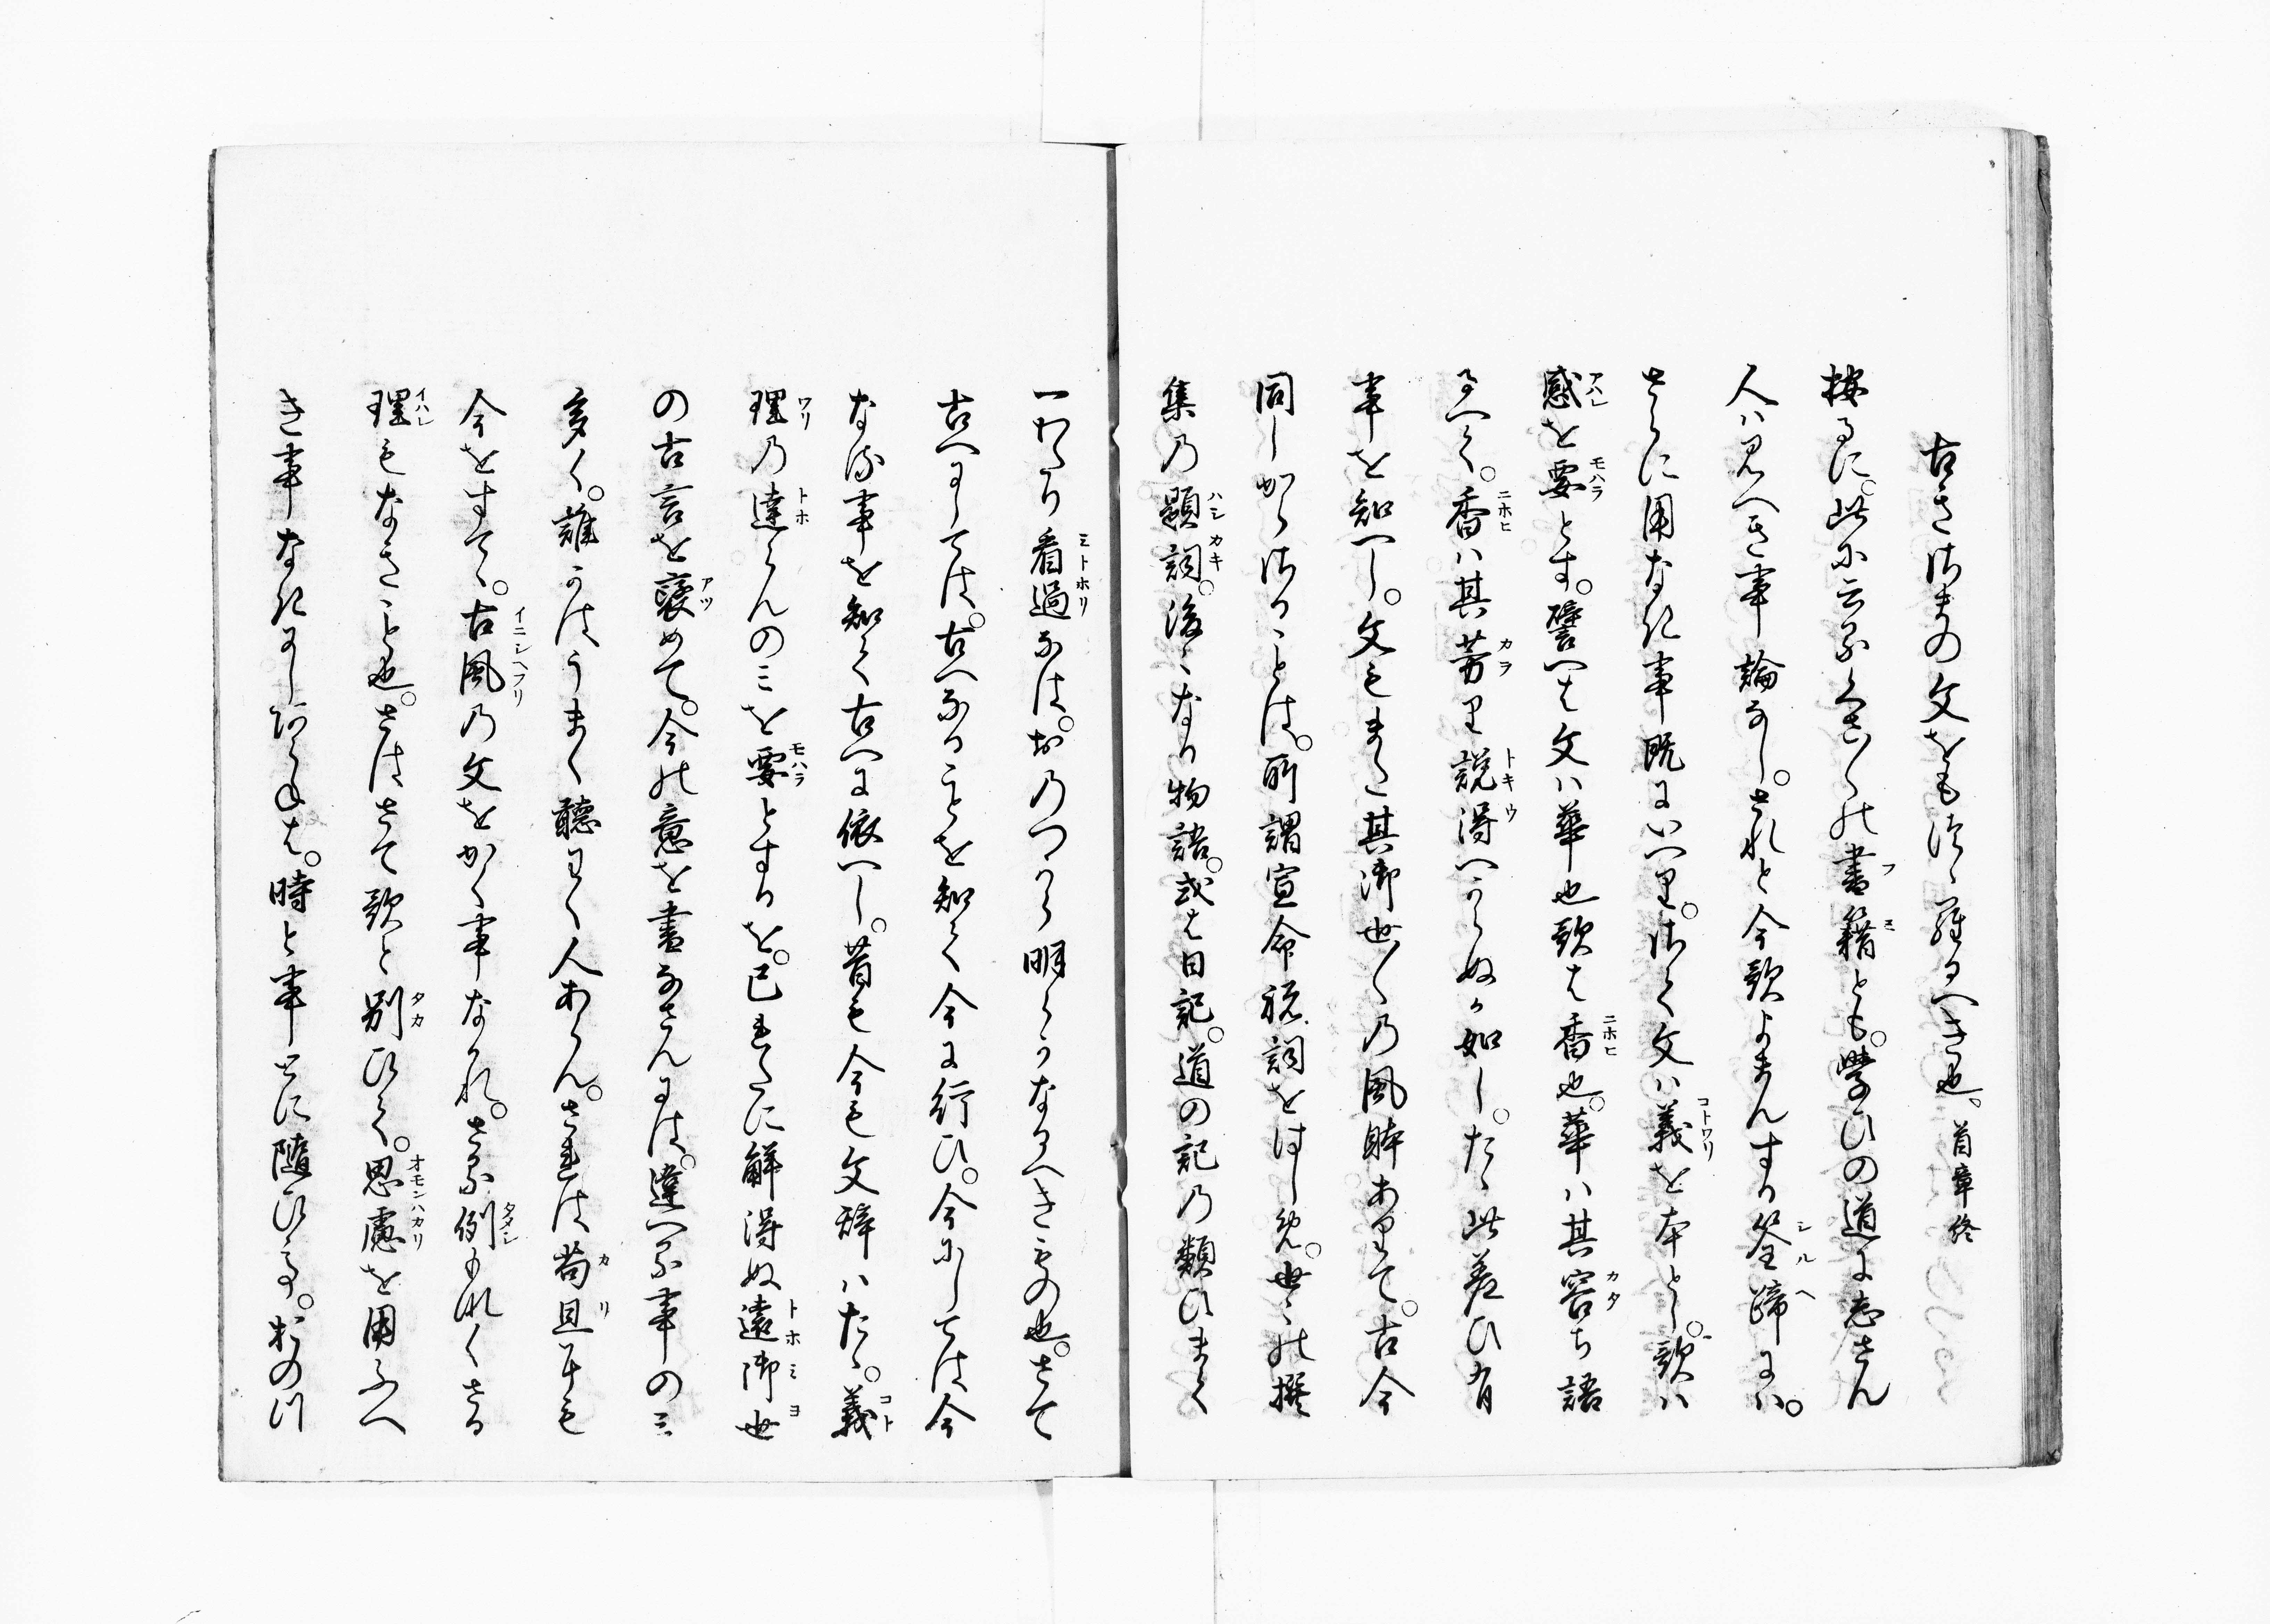 古きさまの文をもつゝ離るへき也。首章終
按るに。此に云るくさ〳〵の書籍とも。學ひの道に志さん
人ハ見へき事論なし。されと今歌よまんする筌蹄にハ。
さらに用なき事既にいへり。さて文ハ義を本とし。歌ハ
感を要とす。譬へは文ハ華也歌は香也。華ハ其容ち語
るへく。香ハ其芳り説得へからぬか如し。たゝ此差ひ有
事を知へし。文もまた其御世〳〵の風躰ありて。古今
同しからさることは。所謂宣命祝詞をはしめ。世ゝの撰
集乃題詞。後ゝなる物語。或は日記。道の記乃類ひまて
一わたり看過なは。おのつから明らかなるへきもの也。さて
古へにしては。古へなることを知て今に行ひ。今にしては今
なる事を知て古へに依へし。昔も今も文辞ハたゝ。義
理乃達らんのミを要とするを。已またに解得ぬ遠御世
の古言を褻めて。今の意を書なさんには。違へる事のミ
多く。誰かはうまく聴わく人あらん。されは苟且にも
今をすてゝ。古風乃文をかく事なかれ。さる例もなくさる
理もなきこと也。さはさて歌と別ひて。思慮を用ふへ
き事なきにしあらねは。時と事とに隨ひる。おのつ